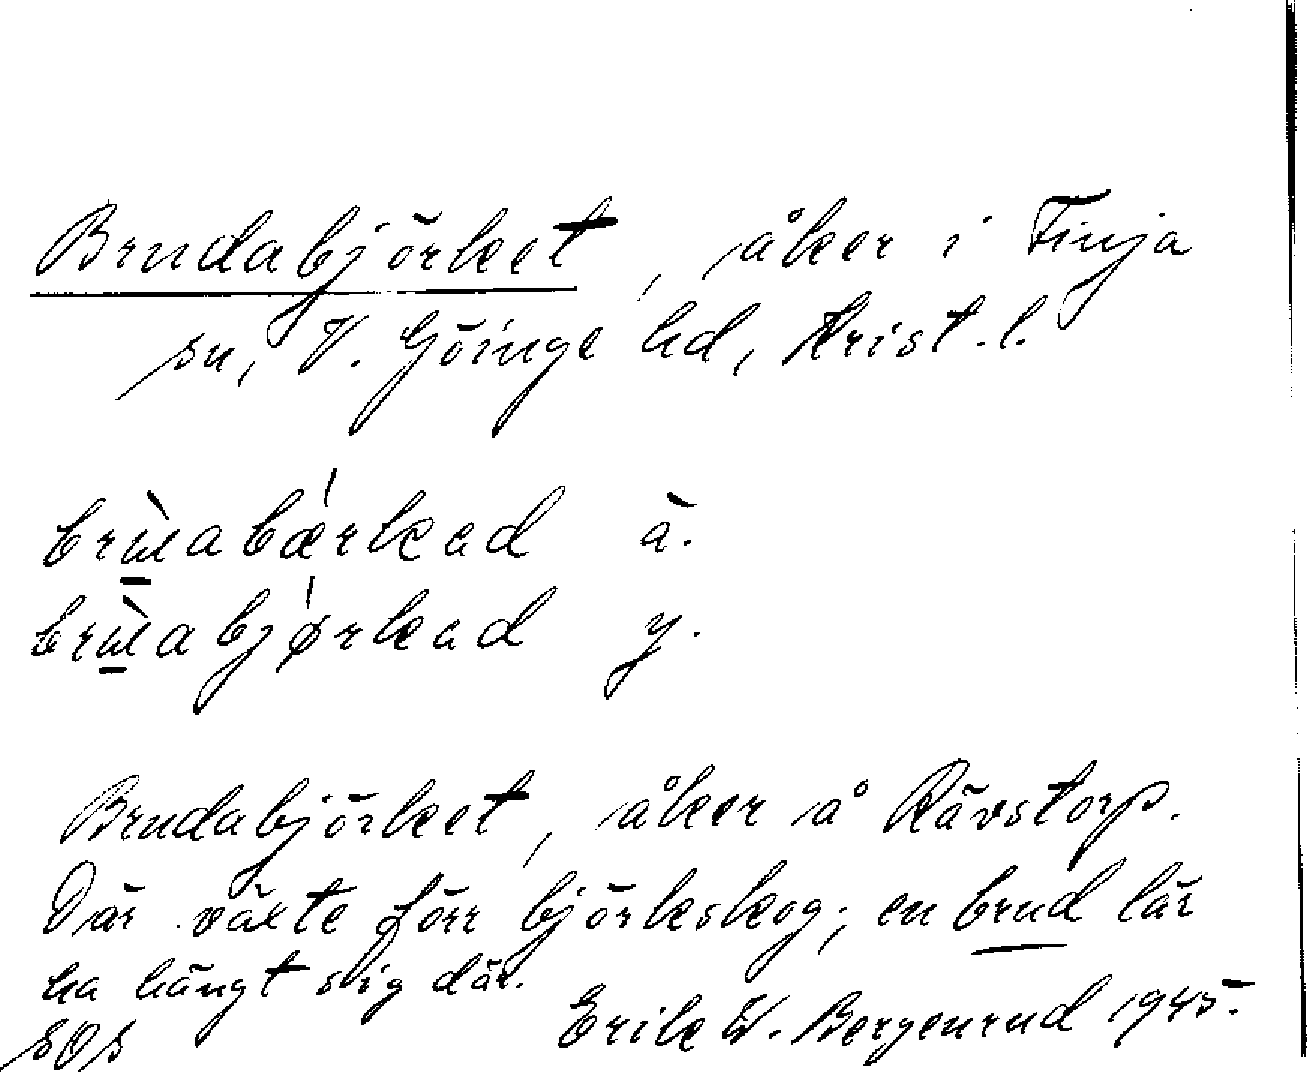 Brudabjörket, åker i Finja
sn, V. Göinge hd, Krist. l.
brùabǽrkad ä.
brùabjǿrkad y.
Brudabjörket, åker å Rävstorp.
Där växte förr björkskog; en brud lär
ha hängt sig där.
SOS Erik W. Bergenrud 1945.